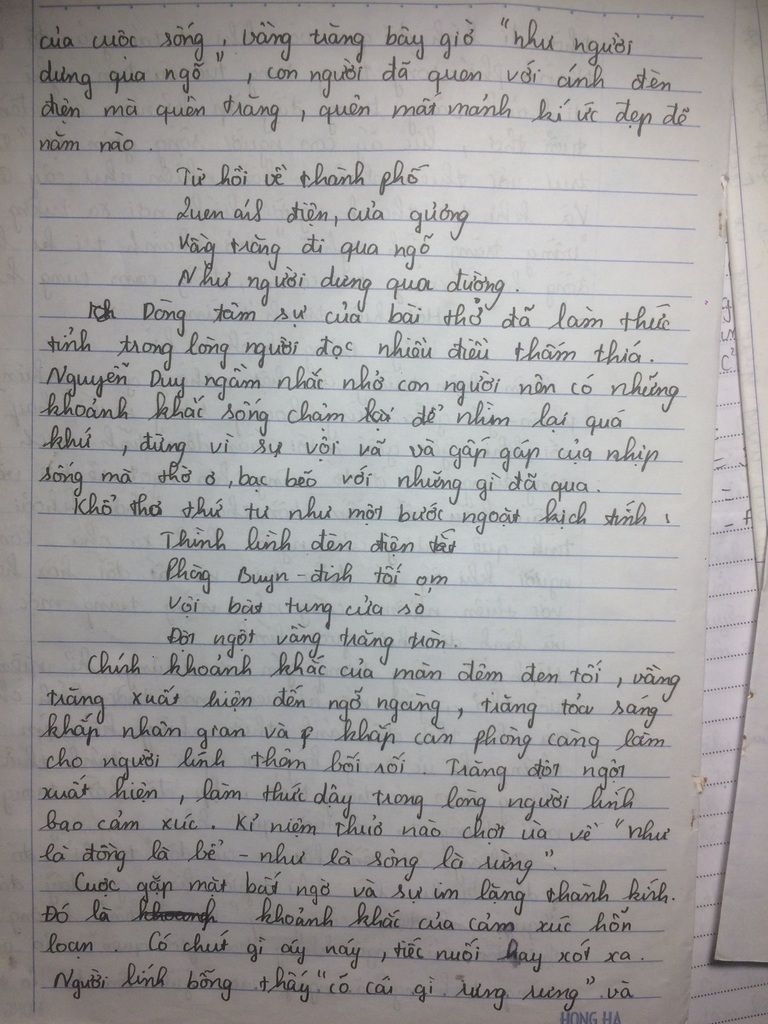 của cuộc sống, vầng trăng bây giờ "như người
dưng qua ngõ", con người đã quen với ánh đèn
điện mà quên trăng, quên mất mảnh kí ức đẹp đẽ
năm nào.
Từ hồi về thành phố
Quen ánh điện, cửa gương
Vầng trăng đi qua ngõ
Như người dưng qua đường.
Dòng tâm sự của bài thơ đã làm thức
tỉnh trong lòng người đọc nhiều điều thấm thía.
Nguyễn Duy ngầm nhắc nhở con người nên có những
khoảnh khắc sống chậm để nhìn lại quá
khứ, đừng vì sự vội vã và gấp gáp của nhịp
sống mà thờ ơ, bạc bẽo với những gì đã qua.
Khổ thơ thứ tư như một bước ngoặt kịch tính:
Thình lình đèn điện tắt
Phòng Buyn-đinh tối om
Vội bật tung cửa sổ
Đột ngột vầng trăng tròn.
Chính khoảnh khắc của màn đêm đen tối, vầng
trăng xuất hiện đến ngỡ ngàng, trăng tỏa sáng
khắp nhân gian và khắp căn phòng càng làm
cho người lính thêm bối rối. Trăng đột ngột
xuất hiện, làm thức dậy trong lòng người lính
bao cảm xúc. Kỉ niệm thuở nào chợt ùa về "như
là đồng là bể - như là sông là rừng".
Cuộc gặp mặt bất ngờ và sự im lặng thành kính.
Đó là khoảnh khắc của cảm xúc hỗn
loạn. Có chút gì áy náy, tiếc nuối hay xót xa.
Người lính bỗng thấy "có cái gì rưng rưng" và
HONG HA